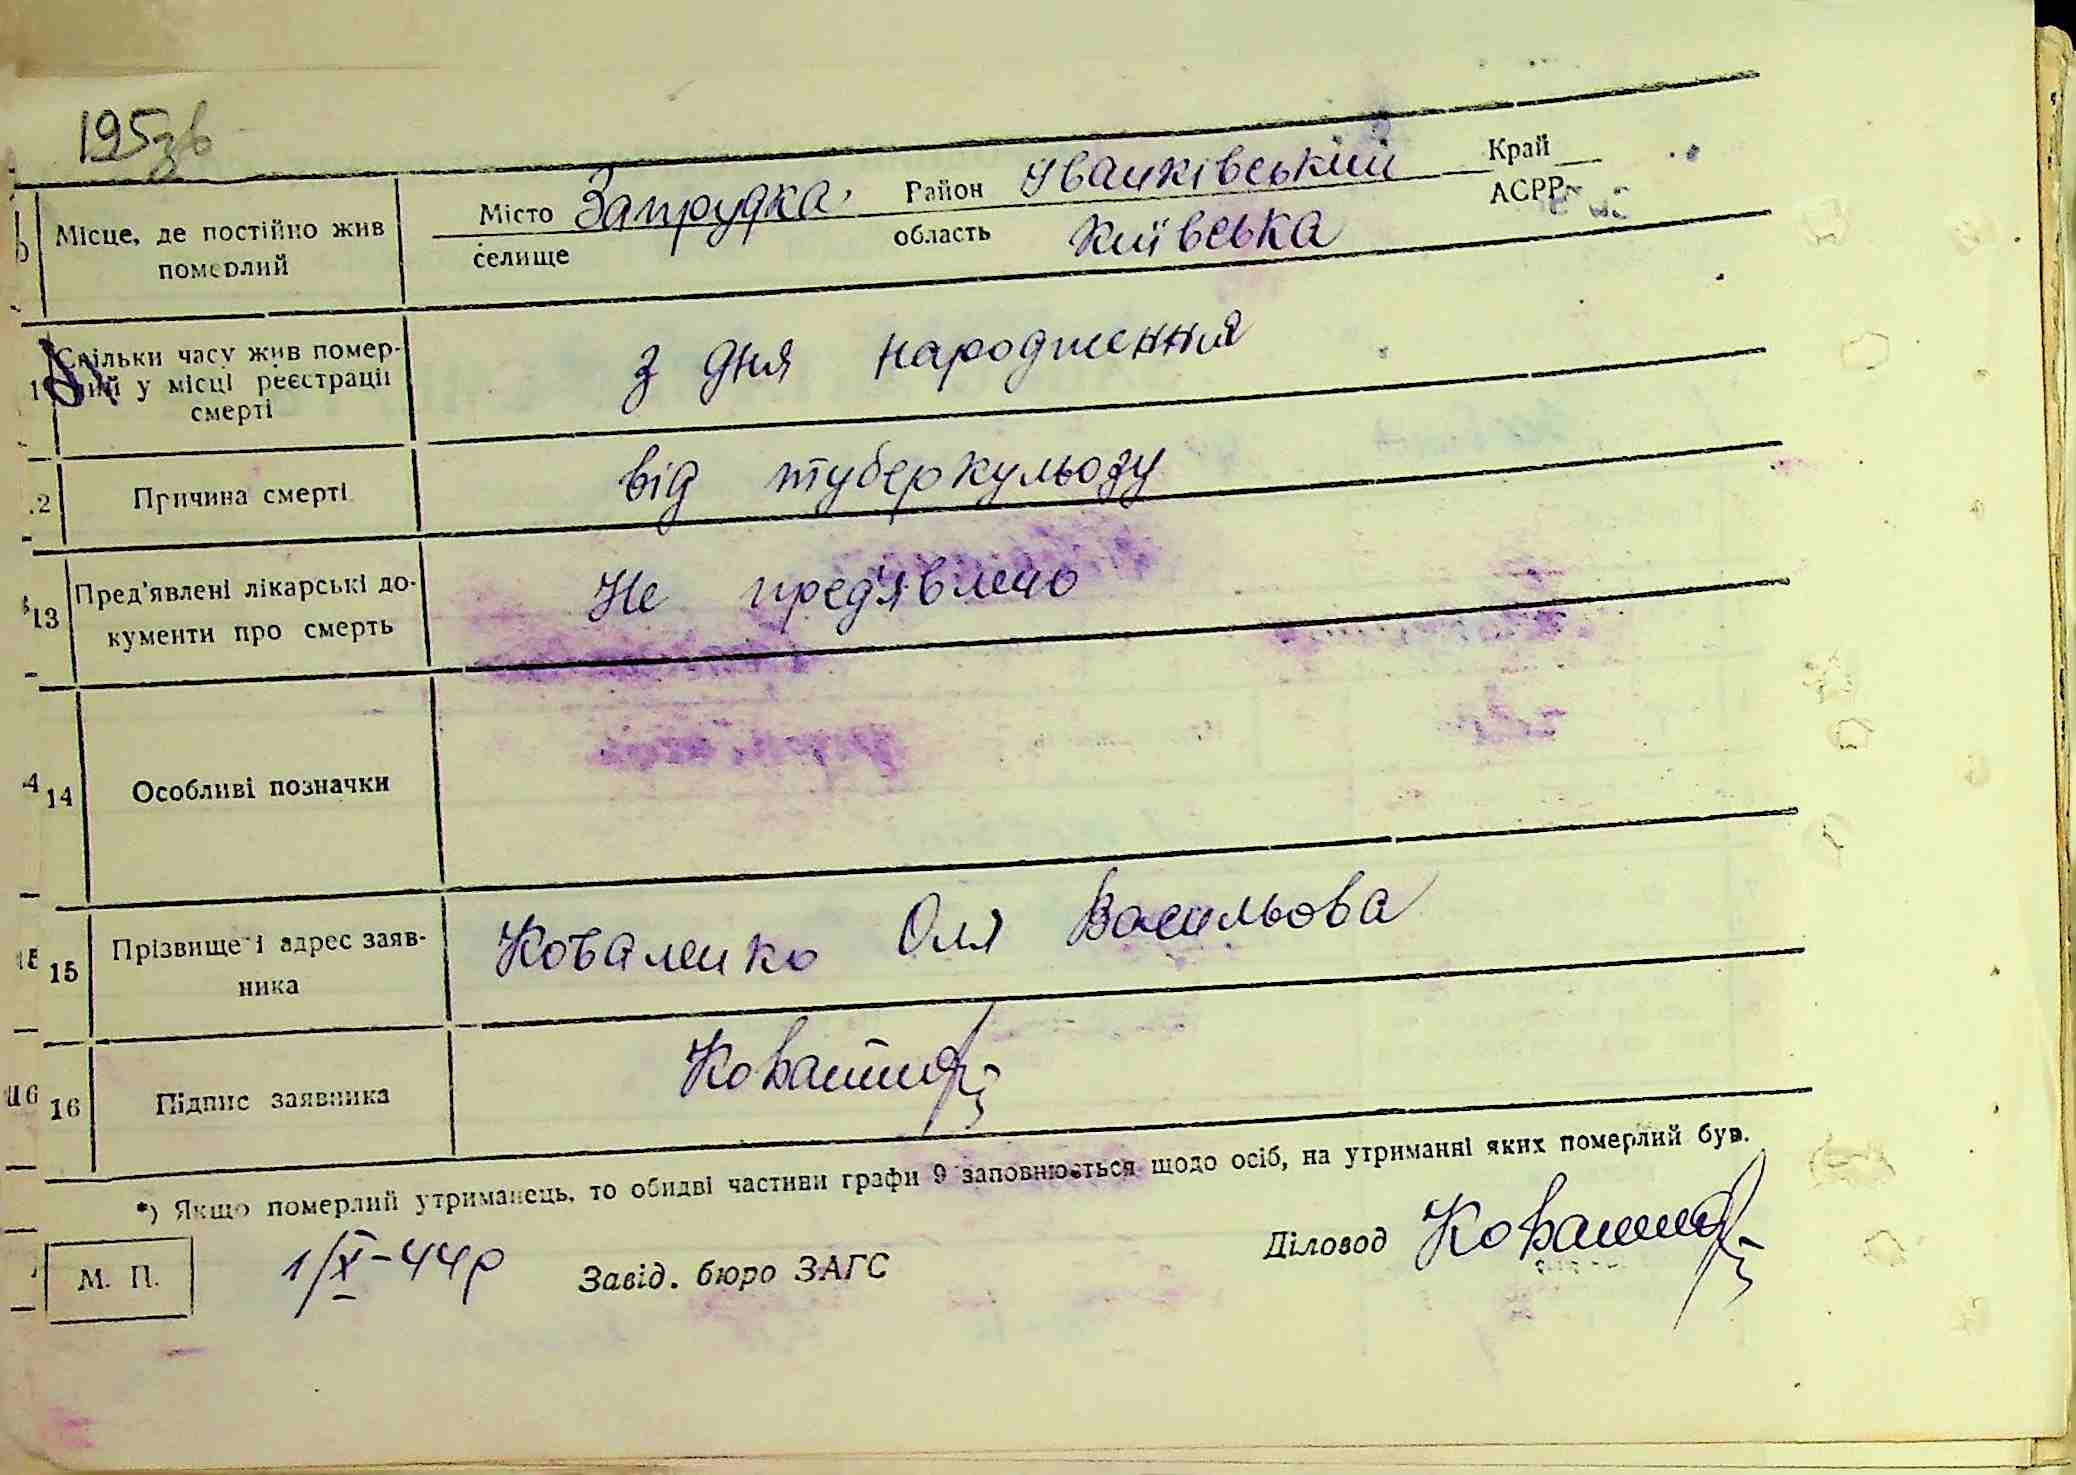 195зв
Місце, де постійно жив
померлий
Місто Запрудка, Район Іванківський Край
селище область Київська АСРР
Скільки часу жив помер-
лий у місці реєстрації
смерті
з дня народження
12 Причина смерті від туберкульозу
13 Пред'явлені лікарські до-
кументи про смерть
Не пред'явлено
14 Особливі позначки
15 Прізвище і адрес заяв-
ника
Коваленко Оля Васильова
16 Підпис заявника
*) Якщо померлий утриманець, то обидві частини графи 9 заповнюється щодо осіб, на утриманні яких померлий був.
М. П. 1/X-44р Завід. бюро ЗАГС Діловод